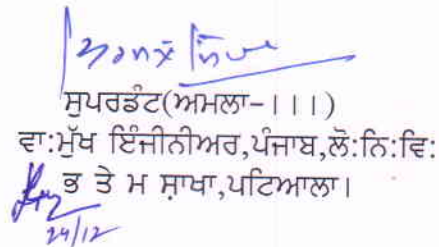 ਸੁਪਰਡੰਟ(ਅਮਲਾ-।।।)
ਵਾ:ਮੁੱਖ ਇੰਜੀਨੀਅਰ,ਪੰਜਾਬ,ਲੋ:ਨਿ:ਵਿ:
ਭ ਤੇ ਮ ਸ਼ਾਖਾ,ਪਟਿਆਲਾ।
24/12